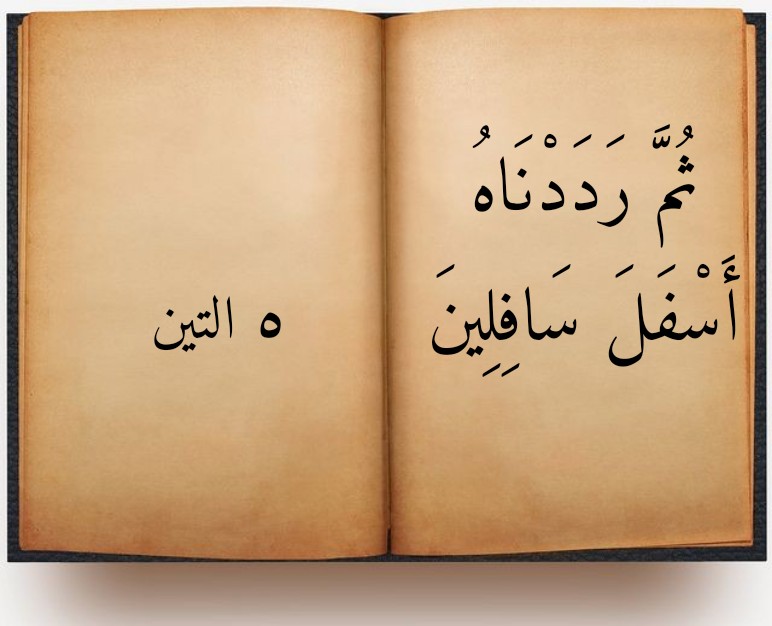 ثُمَّ رَدَدْنَاهُ
أَسْفَلَ سَافِلِينَ
٥ التين